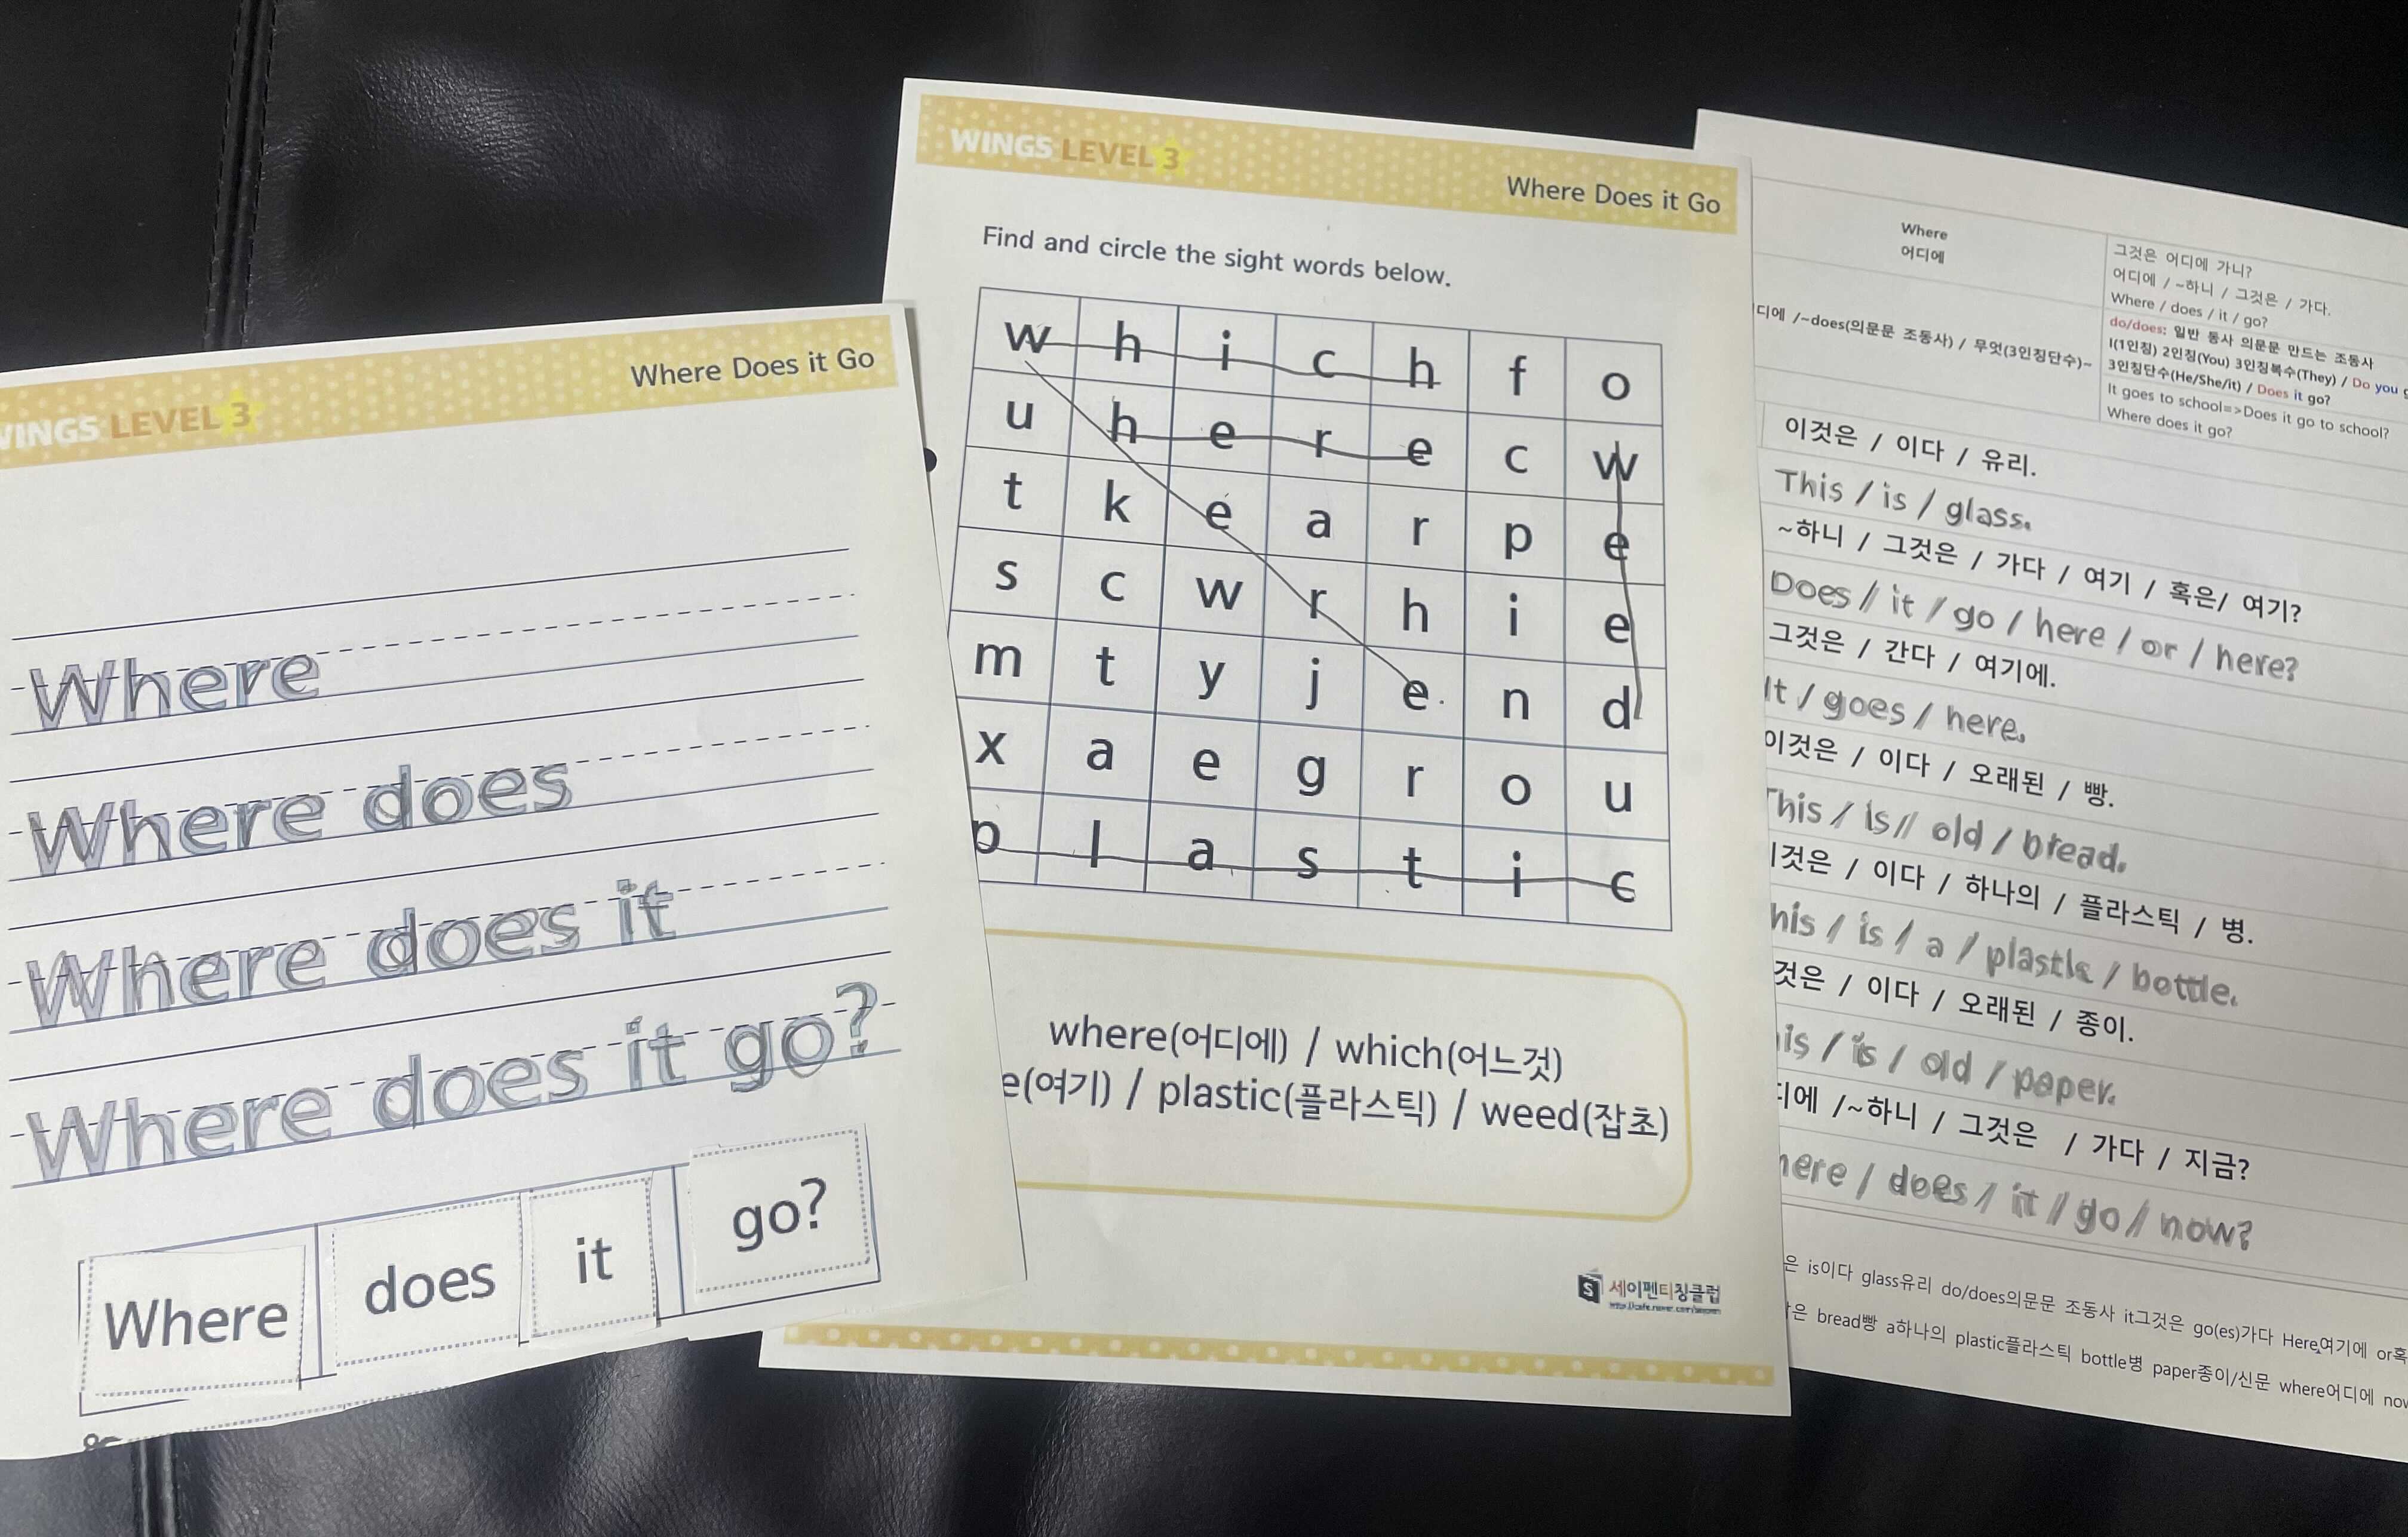 WINGS LEVEL 3
Where Does it Go
Where
Where does
Where does it
Where does it go?
Where does it go?
WINGS LEVEL 3
Where Does it Go
Find and circle the sight words below.
w h i c h f o
u h e r e c w
t k e a r p e
s c w r h i e
m t y j e n d
x a e g r o u
p l a s t i c
where(어디에) / which(어느것)
e(여기) / plastic(플라스틱) / weed(잡초)
세이펜티칭클럽
Where
어디에
디에 /~does(의문문 조동사) / 무엇(3인칭단수)~
그것은 어디에 가니?
어디에 / ~하니 / 그것은 / 가다.
Where / does / it / go?
do/does: 일반 동사 의문문 만드는 조동사
I(1인칭) 2인칭(You) 3인칭복수(They) / Do you
3인칭단수(He/She/it) / Does it go?
It goes to school=>Does it go to school?
Where does it go?
이것은 / 이다 / 유리.
This / is / glass.
~하니 / 그것은 / 가다 / 여기 / 혹은/ 여기?
Does / it / go / here / or / here?
그것은 / 간다 / 여기에.
It / goes / here.
이것은 / 이다 / 오래된 / 빵.
This / is / old / bread.
것은 / 이다 / 하나의 / 플라스틱 / 병.
his / is / a / plastic / bottle.
것은 / 이다 / 오래된 / 종이.
is / is / old / paper.
디에 /~하니 / 그것은 / 가다 / 지금?
here / does / it / go / now?
은 is이다 glass유리 do/does의문문 조동사 it그것은 go(es)가다 Here여기에 or혹
은 bread빵 a하나의 plastic플라스틱 bottle병 paper종이/신문 where어디에 now